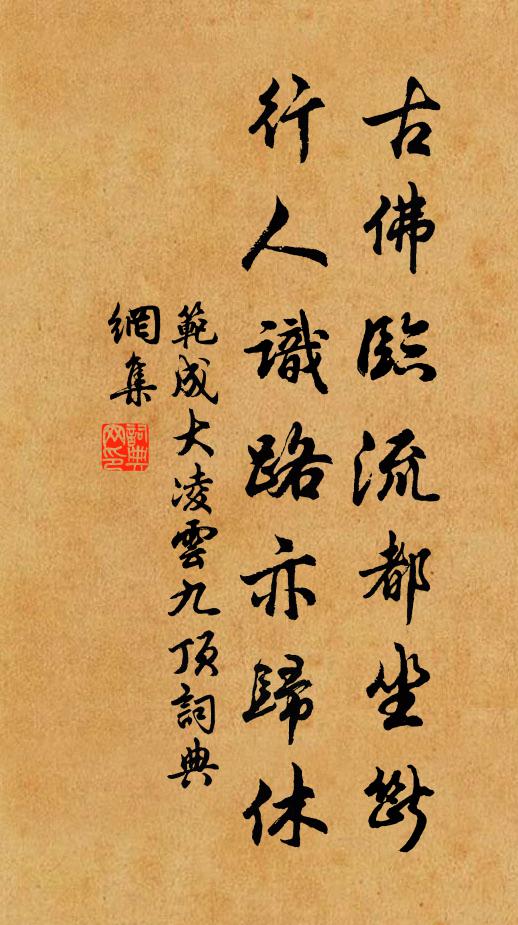 古佛臨流都坐斷
行人識路亦歸休
範成大凌雲九頂詞典
網集
詞典
网印